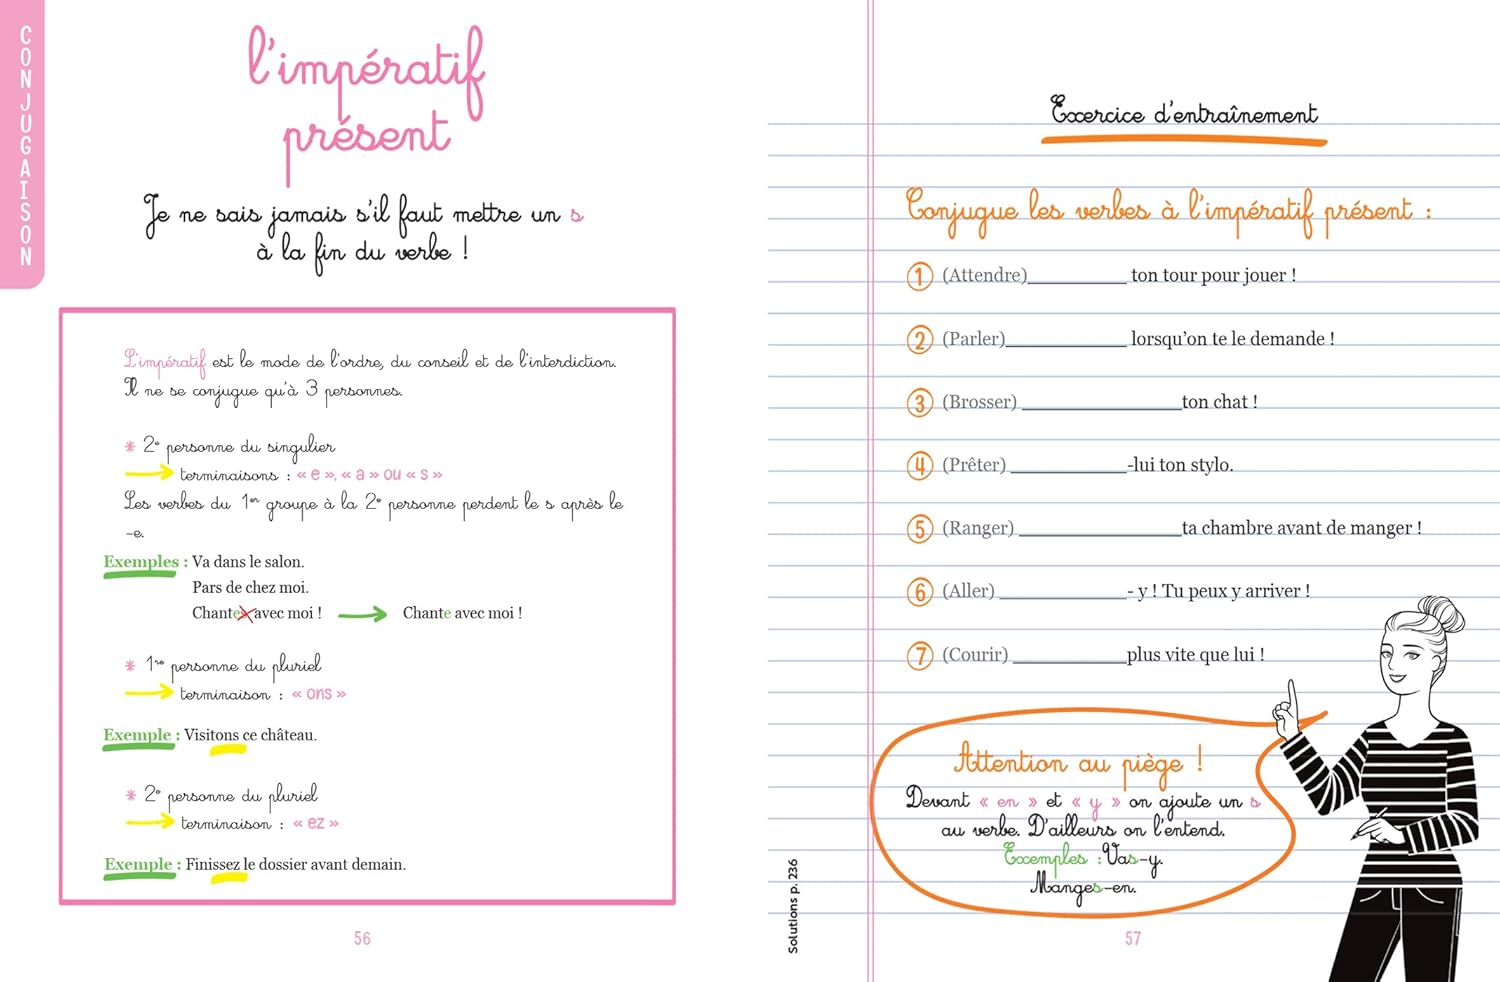 CONJUGAISON
l'impératif
présent
Je ne sais jamais s'il faut mettre un s
à la fin du verbe !
L'impératif est le mode de l'ordre, du conseil et de l'interdiction.
Il ne se conjugue qu'à 3 personnes.
* 2e personne du singulier
terminaisons : « e », « a » ou « s »
Les verbes du 1er groupe à la 2e personne perdent le s après le
-e.
Exemples : Va dans le salon.
Pars de chez moi.
Chantes avec moi ! Chante avec moi !
* 1re personne du pluriel
terminaison : « ons »
Exemple : Visitons ce château.
* 2e personne du pluriel
terminaison : « ez »
Exemple : Finissez le dossier avant demain.
56
Exercice d'entraînement
Conjugue les verbes à l'impératif présent :
1 (Attendre)__________ ton tour pour jouer !
2 (Parler)____________ lorsqu'on te le demande !
3 (Brosser) ________________ton chat !
4 (Prêter) ____________-lui ton stylo.
5 (Ranger) ________________ta chambre avant de manger !
6 (Aller) _____________- y ! Tu peux y arriver !
7 (Courir) ___________plus vite que lui !
Attention au piège !
Devant « en » et « y » on ajoute un s
au verbe. D'ailleurs on l'entend.
Exemples : Vas-y.
Manges-en.
Solutions p. 236
57